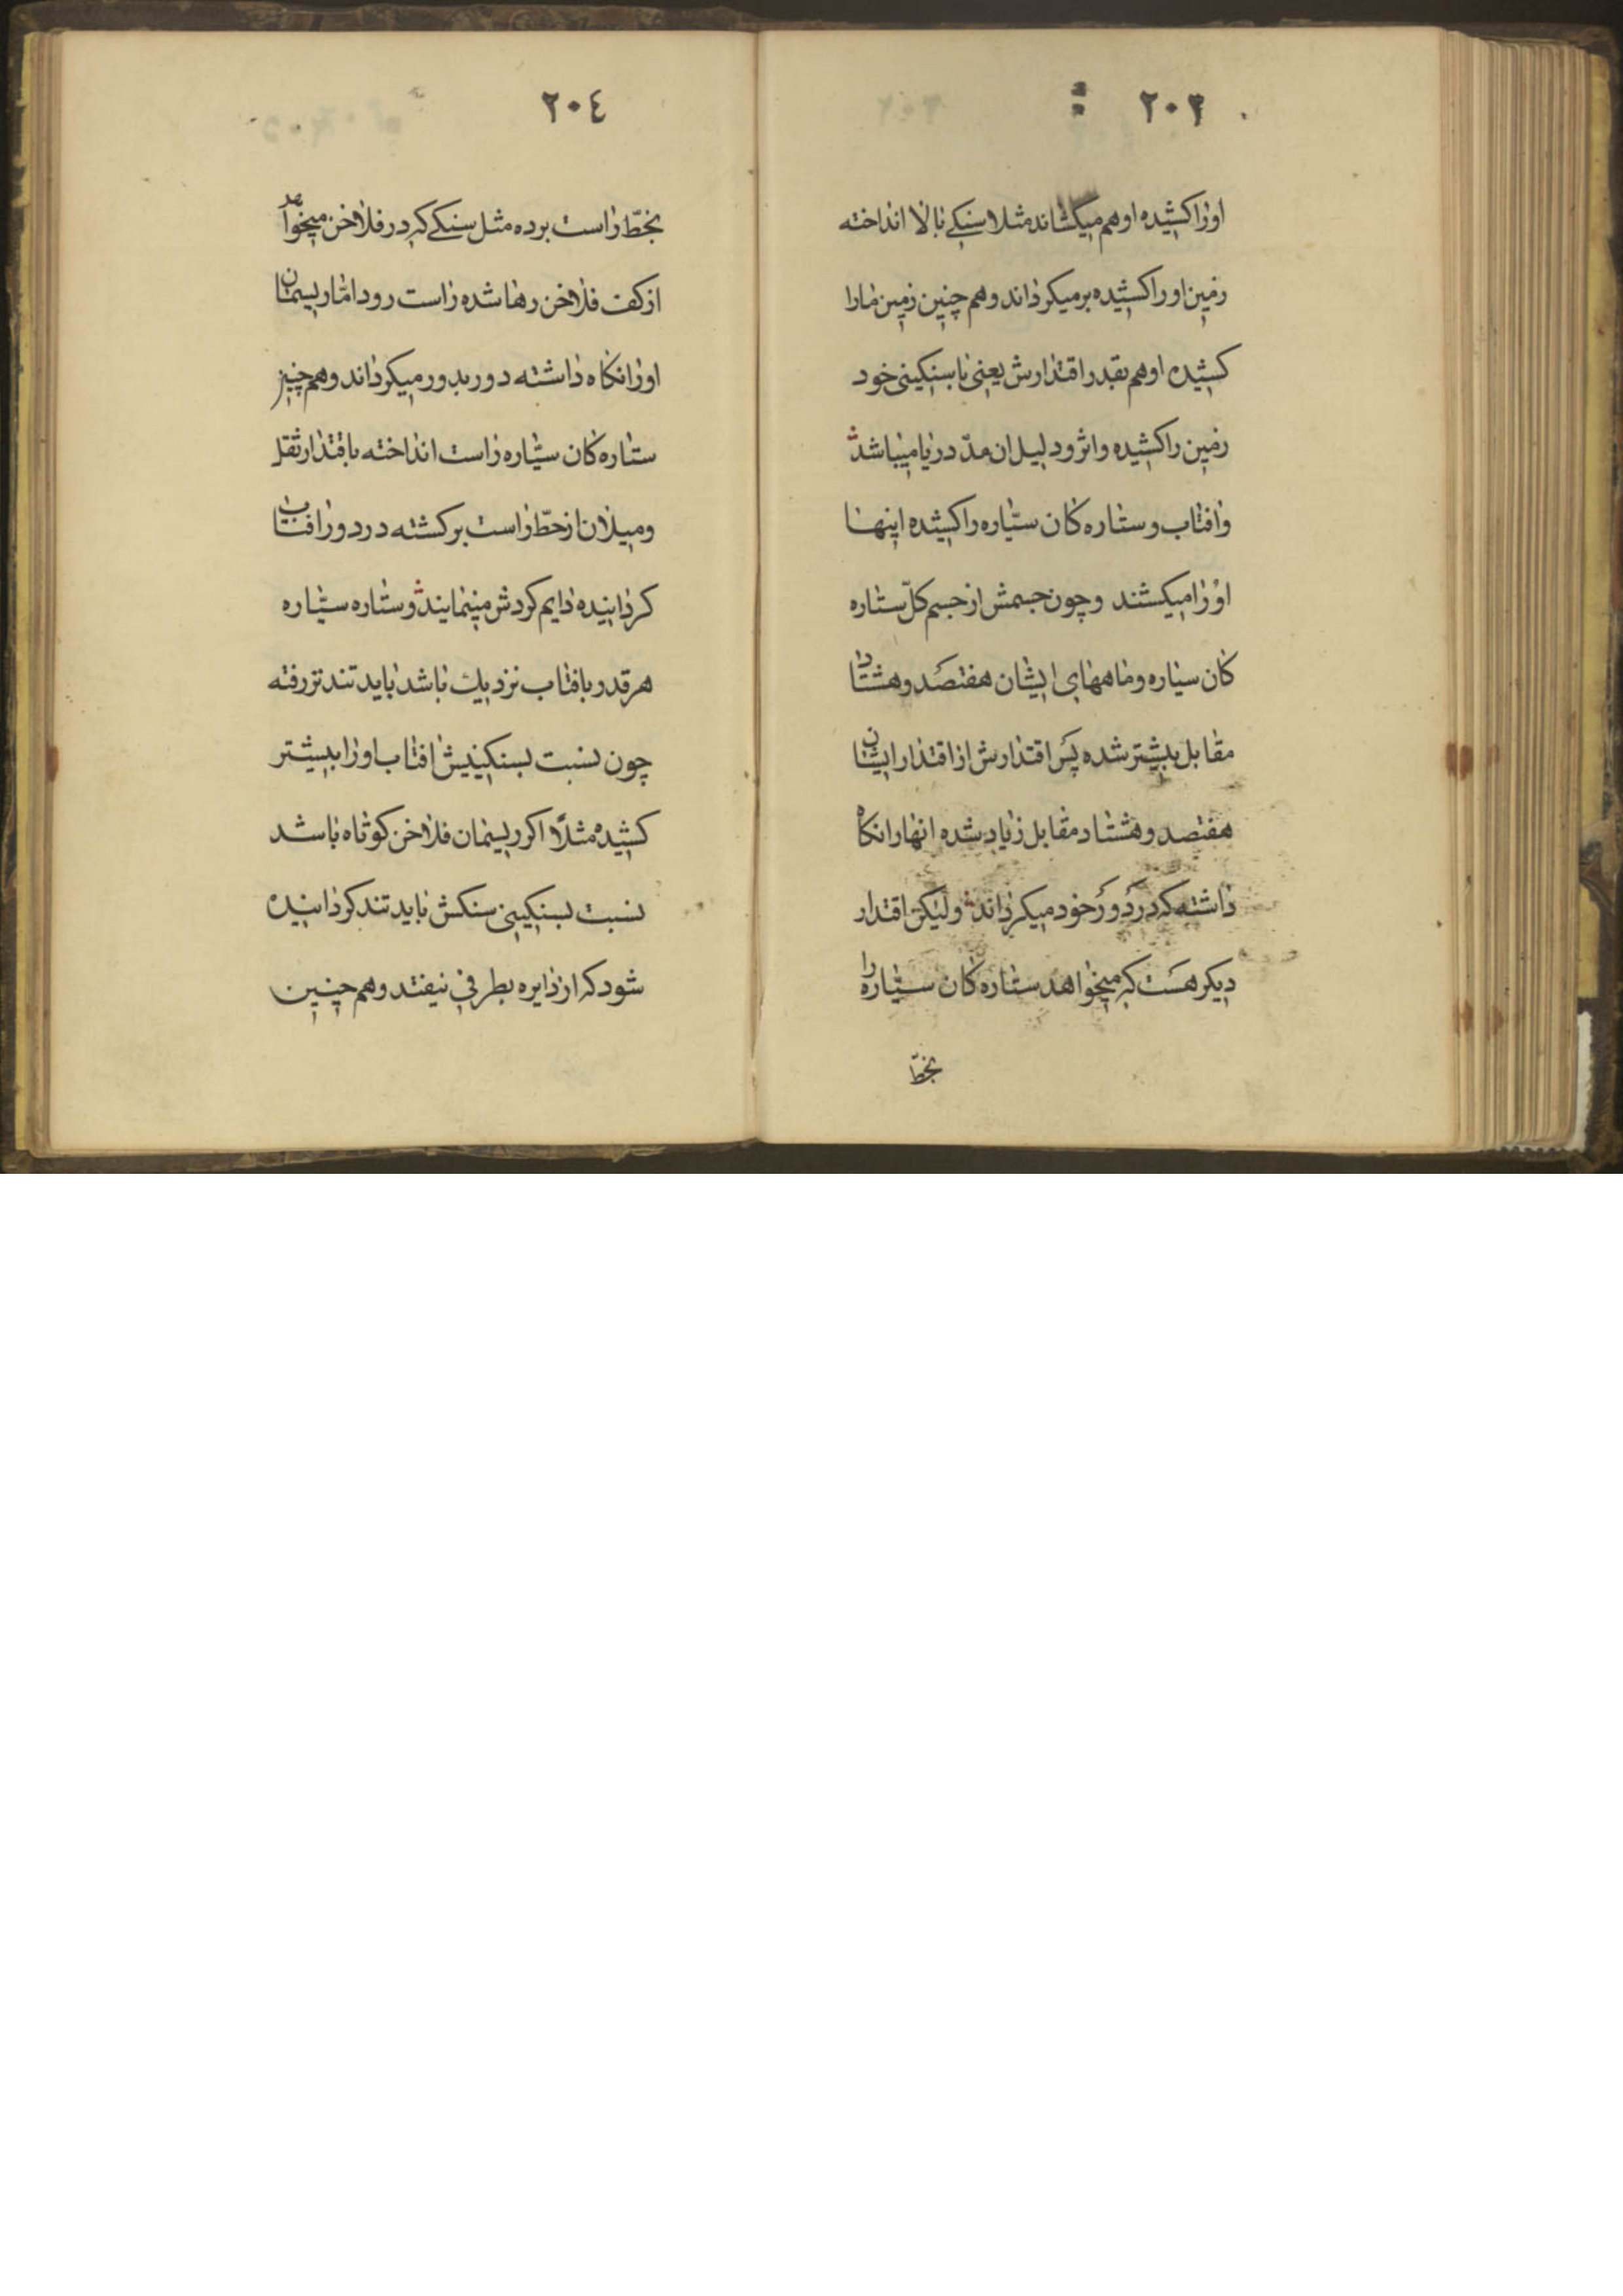 ٢٠٣
اورا کشیده او هم میکشاند مثلا سنکی بالا انداخته
زمین اورا کشیده برمیکرداند و هم چنین زمین ما را
کشیده او هم بقدر اقتدارش یعنی با سنکینی خود
زمین را کشیده و اثر و دلیل ان مدّ دریا میباشد
وافتاب و ستاره کان سیّاره را کشیده اینها
اورا میکشند و چون جسمش از جسم کلّ ستاره
کان سیاره و ماههای ایشان هفتصد و هشتاد
مقابل بیشتر شده پس اقتدارش از اقتدار ایشان
هفتصد و هشتاد مقابل زیاد شده انها را نکاه
داشته که در دور خود میکرداند ولیکن اقتدار
دیکر هست که میخواهد ستاره کان سیّاره را
بخطّ
٢٠٤
بخطّ راست برده مثل سنکی که در فلاخن میخواهد
از کف فلاخن رها شده راست رود امّا ریسمان
اورا نکاه داشته دور بدور میکرداند و هم چنین
ستاره کان سیّاره راست انداخته باقتدار ثقل
و میلان از خطّ راست برکشته در دور افتاب
کردانیده دایم کردش مینمایند و ستاره سیّاره
هر قدر بافتاب نزدیک باشد باید تندتر رفته
چون نسبت بسنکینیش افتاب اورا بیشتر
کشیده مثلاً اکر ریسمان فلاخن کوتاه باشد
نسبت بسنکینی سنکش باید تند کردانیده
شود که از دایره بطرفی نیفتد و هم چنین